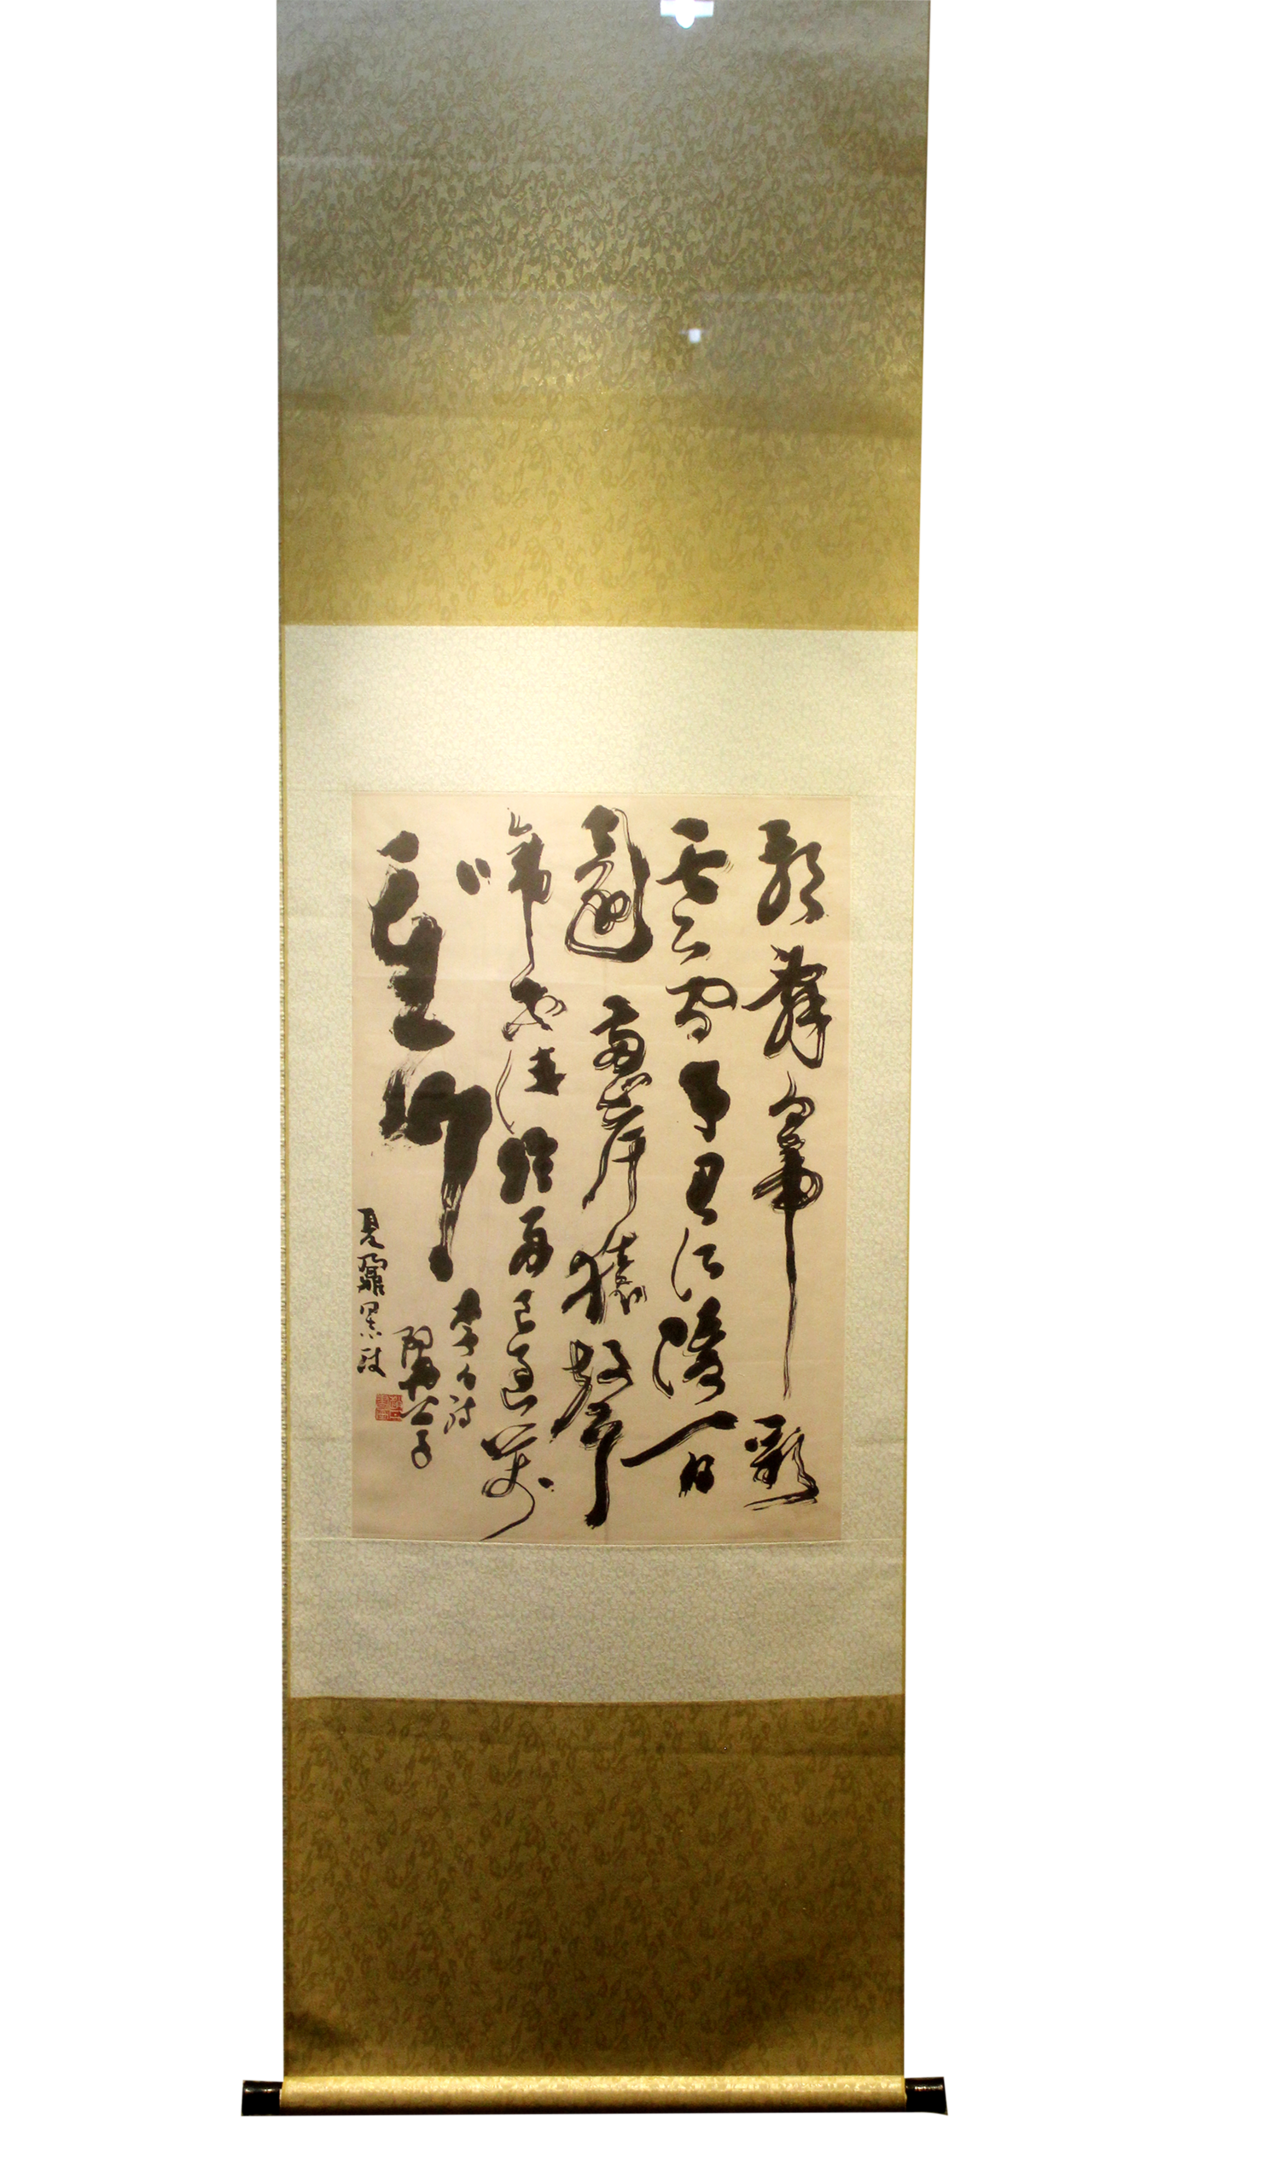 朝辭白帝彩
雲間千里江陵一日
還兩岸猿聲
啼不住輕舟已過萬
重山
李白詩